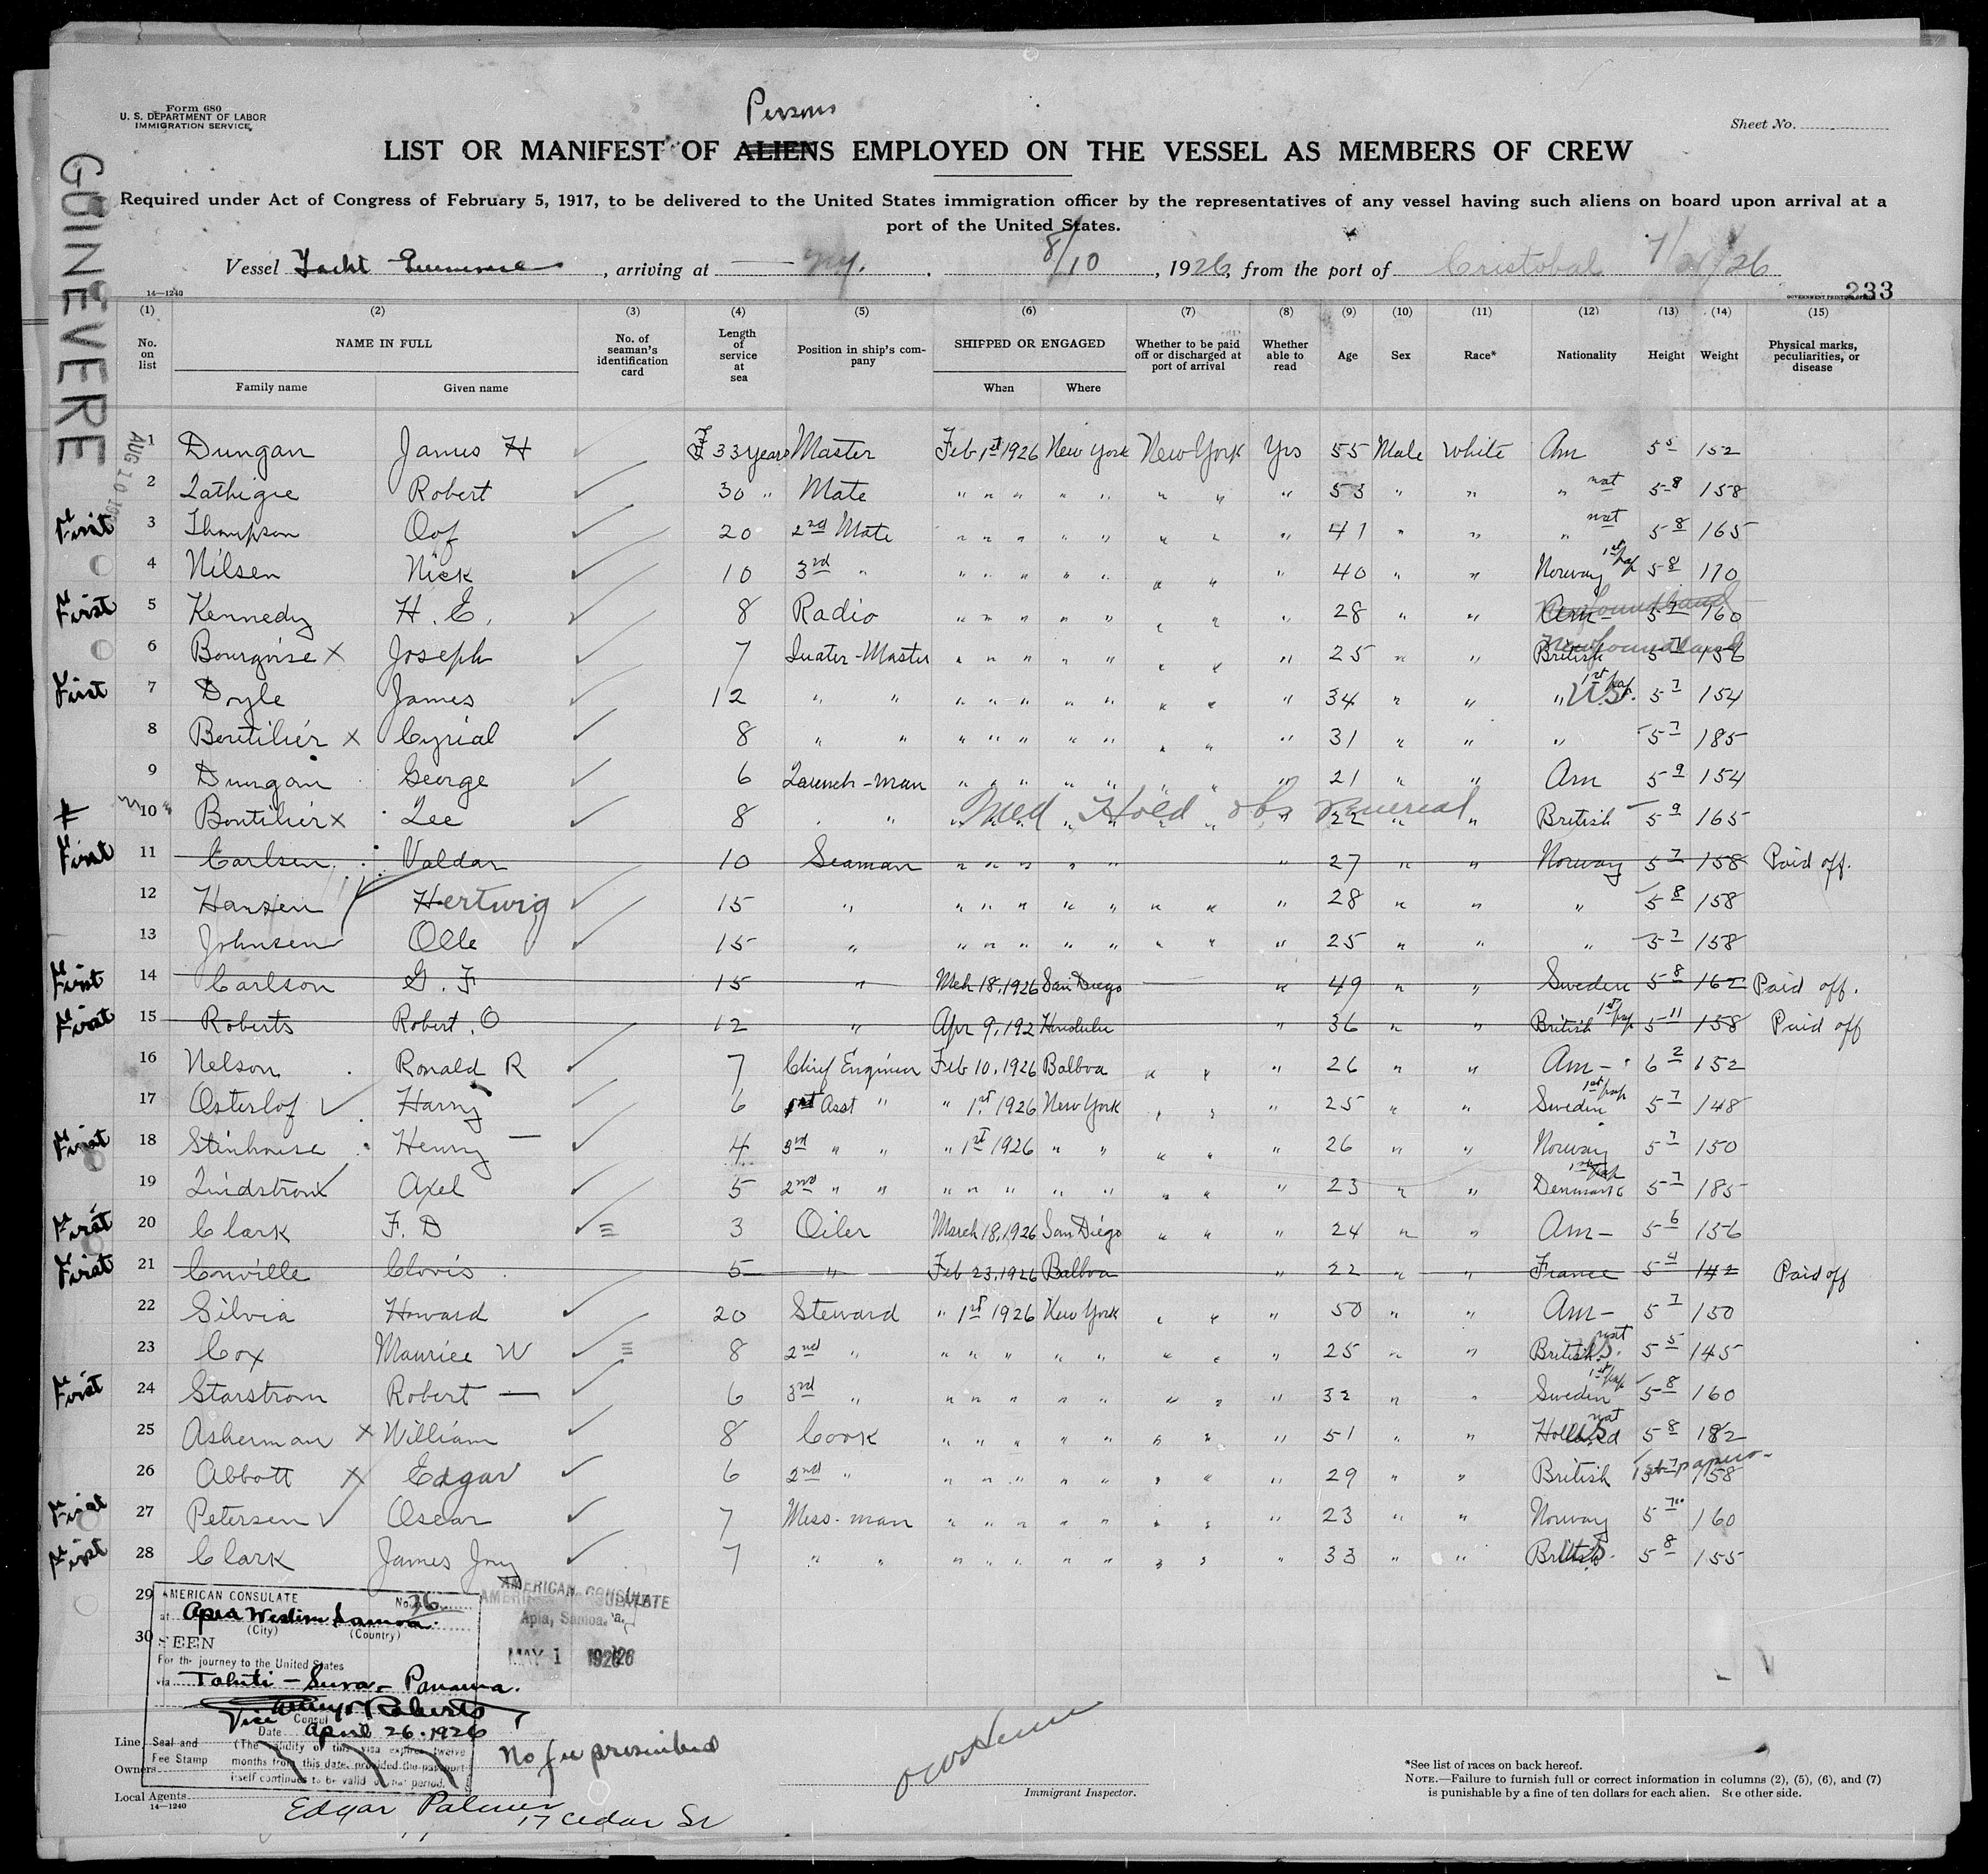 Form 680
U. S. DEPARTMENT OF LABOR
IMMIGRATION SERVICE
Sheet No.
Persons
LIST OR MANIFEST OF ALIENS EMPLOYED ON THE VESSEL AS MEMBERS OF CREW
Required under Act of Congress of February 5, 1917, to be delivered to the United States immigration officer by the representatives of any vessel having such aliens on board upon arrival at a
port of the United States.
Vessel Yacht, arriving at N.Y. 8/10, 1926, from the port of Cristobal 7/21/26
14—1240
GOVERNMENT PRINTING OFFICE
233
GUINEVERE
AUG 10
(1) (2) (3) (4) (5) (6) (7) (8) (9) (10) (11) (12) (13) (14) (15)
No. on list
NAME IN FULL
Family name Given name
No. of seaman's identification card
Length of service at sea
Position in ship's company
SHIPPED OR ENGAGED
When Where
Whether to be paid off or discharged at port of arrival
Whether able to read
Age Sex Race* Nationality Height Weight
Physical marks, peculiarities, or disease
1 Dungan James H 33 years Master Feb 1st 1926 New York New York Yes 55 Male White Am 5 5 152
2 Lathigee Robert 30 " Mate " " " " " " " " 53 " " " nat 5-8 158
First 3 Thompson Oof 20 2nd Mate " " " " " " " " 41 " " " nat 5 8 165
4 Nilsen Nick 10 3rd " " " " " " " " " 40 " " Norway 1st pap 5-8 170
First 5 Kennedy H. E. 8 Radio " " " " " " " " 28 " " Am Newfoundland 5 7 160
6 Bourgoise X Joseph 7 Quater-Master " " " " " " " " 25 " " British Newfoundland 5 7 156
First 7 Doyle James 12 " " " " " " " " " " 34 " " " U.S. 1st pap. 5 7 154
8 Boutilier X Cyrial 8 " " " " " " " " " " 31 " " " 5 7 185
9 Dungan George 6 Launch-man " " " " " " " " 21 " " Am 5 9 154
10 Boutilier X Lee 8 " " " " " " " " " 22 " " British 5 9 165
Med Hold obs venereal
First 11 Carlsen Valdar 10 Seaman " " " " " " 27 " " Norway 5 7 158 Paid off.
12 Hansen Hertwig 15 " " " " " " " " " 28 " " " 5 8 158
13 Johnsen Olle 15 " " " " " " " " " 25 " " " 5 7 158
First 14 Carlson G. F 15 " Mch 18, 1926 San Diego " 49 " " Sweden 5 8 162 Paid off.
First 15 Roberts Robert. O 12 " Apr 9, 192 Honolulu " 36 " " British 1st pap 5 11 158 Paid off
16 Nelson Ronald R 7 Chief Engineer Feb 10, 1926 Balboa " " " 26 " " Am- 6 2 152
17 Osterlof Harry 6 1st Asst " " 1st 1926 New York " " " 25 " " Sweden 1st pap 5 7 148
First 18 Stenhouse Henry — 4 3rd " " " 1st 1926 " " " " " 26 " " Norway 5 7 150
19 Lindstrom Axel 5 2nd " " " " " " " " " " 23 " " Denmark 1st pap 5 7 185
First 20 Clark F. D 3 Oiler March 18, 1926 San Diego " " " 24 " " Am- 5 6 156
First 21 Conville Clovis 5 " Feb 23, 1926 Balboa " 22 " " France 5 4 142 Paid off
22 Silvia Howard 20 Steward " 1st 1926 New York " " " 50 " " Am- 5 7 150
23 Cox Maurice W 8 2nd " " " " " " " " " 25 " " British nat 5 5 145
First 24 Starstrom Robert — 6 3rd " " " " " " " " " 32 " " Sweden 1st pap 5 8 160
25 Asherman X William 8 Cook " " " " " " " " 51 " " Holland nat 5 8 182
26 Abbott X Edgar 6 2nd " " " " " " " " " 29 " " British 1st papers 5 7 158
First 27 Petersen Oscar 7 Mess-man " " " " " " " " 23 " " Norway 5 7 160
First 28 Clark James Jny 7 " " " " " " " " " " 33 " " British 5 8 155
29
30
AMERICAN CONSULATE No. 26
at Apia Western Samoa.
(City) (Country)
SEEN
For the journey to the United States
via Tahiti - Suva - Panama.
Roberts
Vice Consul
Date April 26. 1926
(The validity of this visa expires twelve
months from this date, provided the passport
itself continues to be valid for that period.
Seal and
Fee Stamp
AMERICAN CONSULATE
Apia, Samoa.
MAY 1 1926
No fee prescribed
Line
Owners
Local Agents
14—1240
Edgar Palmer
17 Cedar St
Immigrant Inspector.
*See list of races on back hereof.
NOTE.—Failure to furnish full or correct information in columns (2), (5), (6), and (7)
is punishable by a fine of ten dollars for each alien. See other side.